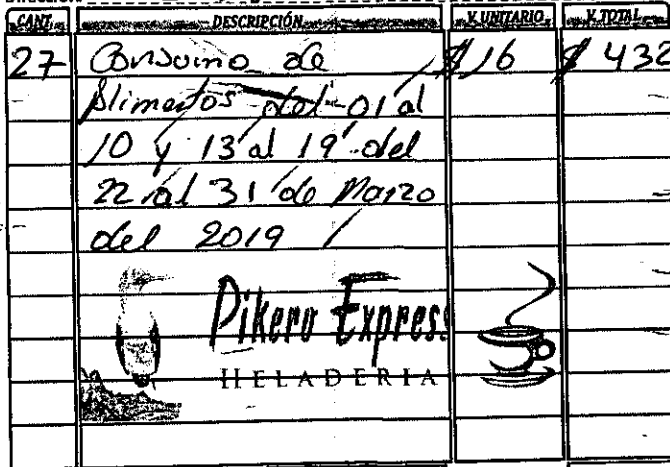 CANT. DESCRIPCIÓN V. UNITARIO V. TOTAL
27 Consumo de $16 $432
Alimentos del 01 al
10 y 13 al 19 del
22 al 31 de Marzo
del 2019
Pikero Express
HELADERIA